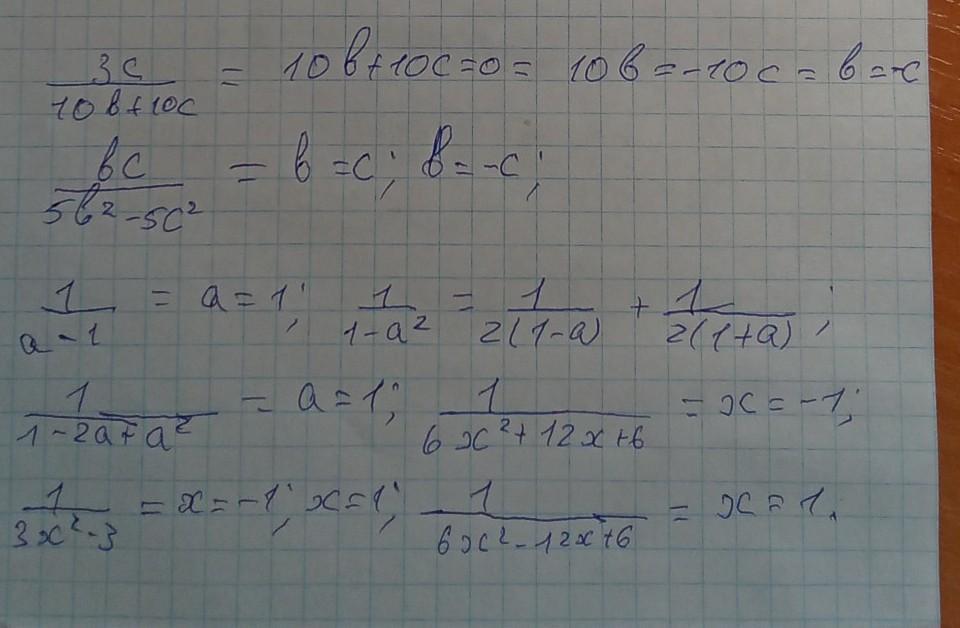 3c/(10в+10c) = 10в+10c=0= 10в=-10c = в=-c
вc/(5в²-5c²) = в=c; в=-c;
1/(a-1) = a=1; 1/(1-a²) = 1/(2(1-a)) + 1/(2(1+a));
1/(1-2a+a²) = a=1; 1/(6x²+12x+6) = x=-1;
1/(3x²-3) = x=-1; x=1; 1/(6x²-12x+6) = x=1.